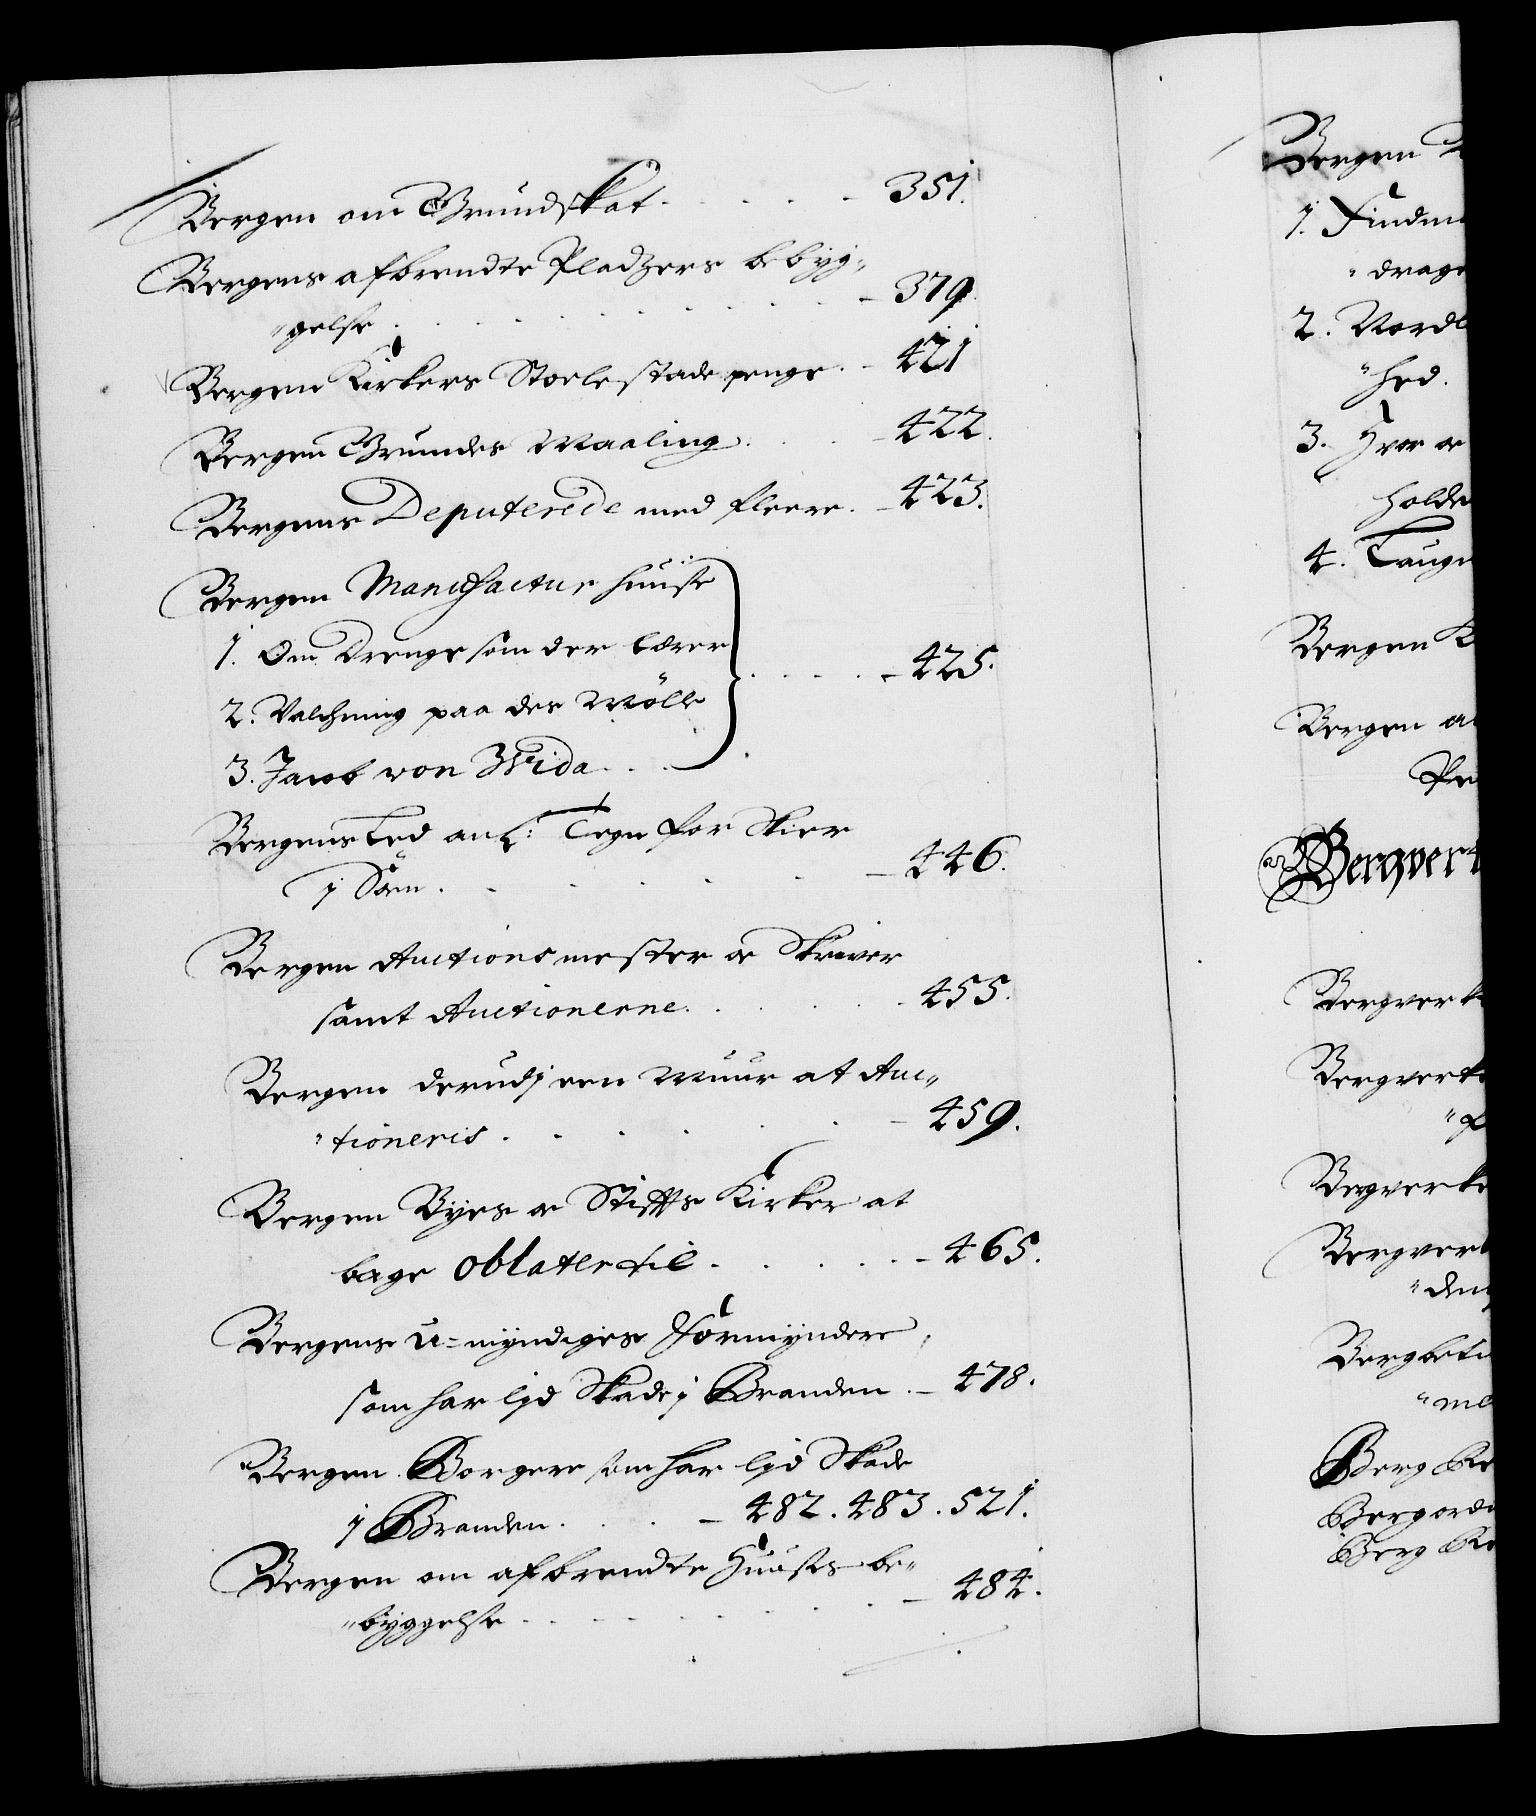 Bergen om Grundskat . . . . . 351.
Bergens afbrendte Pladzers bebyg„
„gelse . . . . . . . 379.
Bergen Kirkers Stoelestade penge . – 421
Bergen Grundes Maaling . . . – 422.
Bergens Deputerede med fleere . – 423.
Bergen Manufactur Huuse
1. Om Drenge som der lærer
2. Valchning paa des Mölle . . . . – 425.
3. Jacob von Wida . . .
Bergens Led anl: Tegn for Skier
i Söen . . . . . . – 446.
Bergen Auctions mester oc Skriver
samt Auctionerne . . . . 455.
Bergen derudj een Muur at Auc„
„tioneris . . . . . – 459.
Bergen Byes oc Stifts Kirker at
bage oblater til . . . . . – 465.
Bergens u-myndiges Formyndere,
som har lid Skade i Branden . – 478.
Bergen Borgere som har lid Skade
i Branden . . . – 482. 483. 521.
Bergen om afbrendte Huuses be„
„byggelse . . . . . . – 484.
Bergen
1. Findm
„drage
2. Nordl
„hed.
3. Hvor oc
holde
4. Laug
Bergen K
Bergen a
Bergverk
Bergverk
Bergverk
Bergverke
Bergverk
„den
Berg
„me
Berg
Bergord
Berg